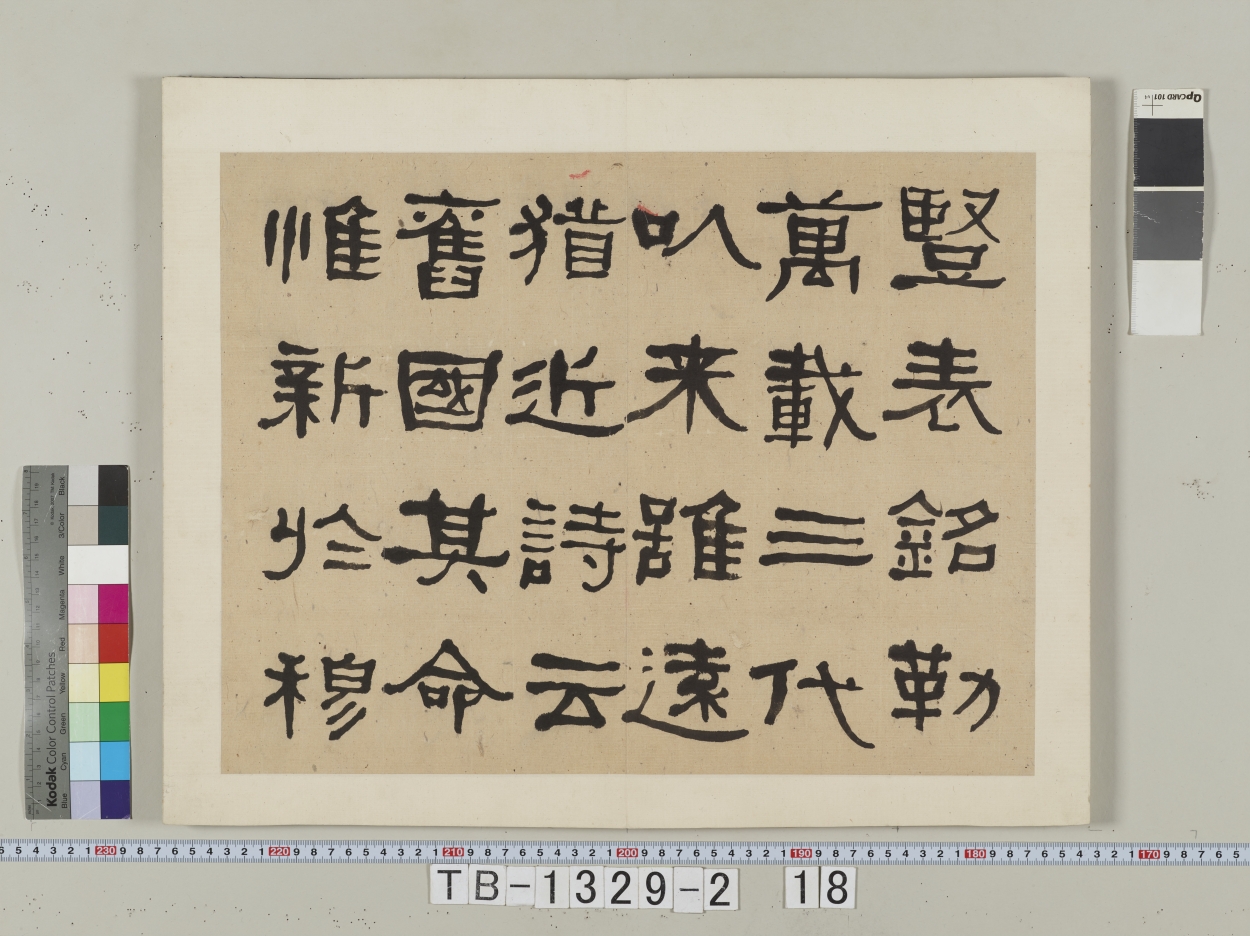 豎表銘勒
萬載三代
㕥来誰遠
猶近詩云
舊國其命
惟新於穆
QpCARD 101
Kodak Color Control Patches
Blue Cyan Green Yellow Red Magenta White 3/Color Black
6 5 4 3 2 1 230 9 8 7 6 5 4 3 2 1 220 9 8 7 6 5 4 3 2 1 210 9 8 7 6 5 4 3 2 1 200 9 8 7 6 5 4 3 2 1 190 9 8 7 6 5 4 3 2 1 180 9 8 7 6 5 4 3 2 1 170 9 8 7 6 5
TB-1329-2 18